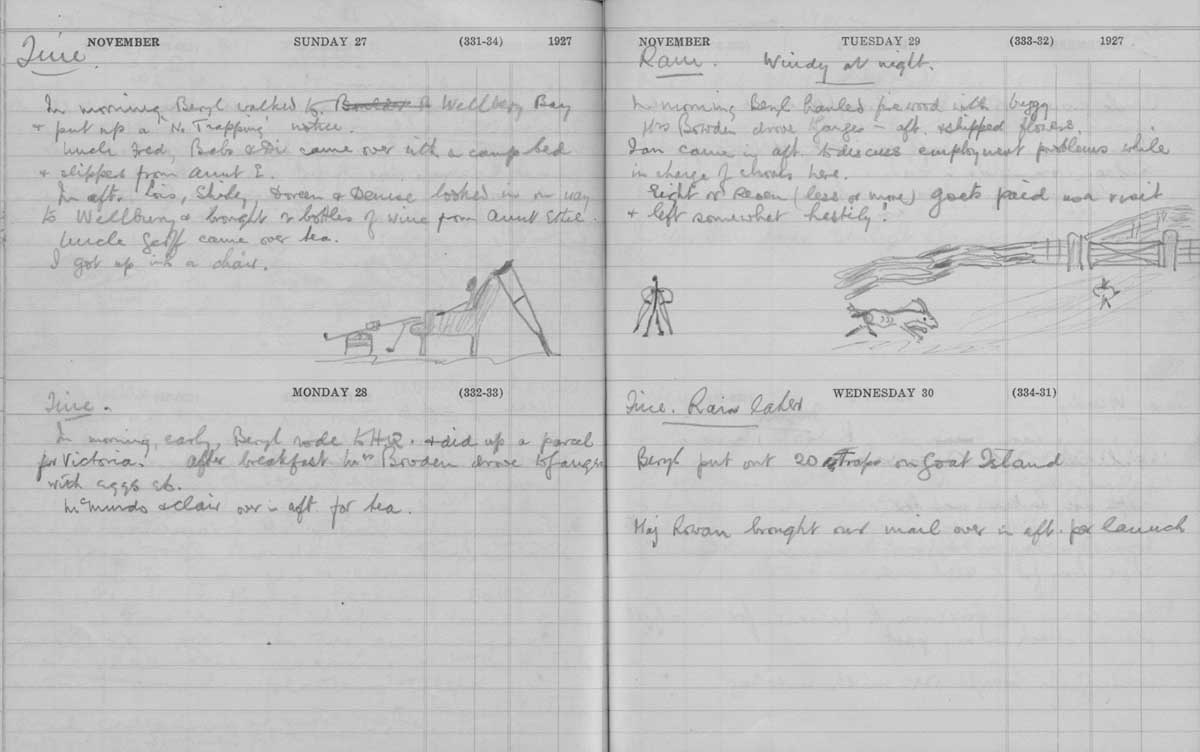 NOVEMBER SUNDAY 27 (331-34) 1927
Fine.
In morning, Beryl walked to Boulder B Wellbury Bay
& put up a "No Trapping" notice.
Uncle Fred, Babs & Di came over with a camp bed
& slippers from Aunt E.
In aft. Lois, Shirley, Doreen & Denise looked in on way
to Wellbury & brought 2 bottles of wine from Aunt Ethel.
Uncle Geoff came over tea.
I got up in a chair.
MONDAY 28 (332-33)
Fine.
In morning, early, Beryl rode to H.Q. & did up a parcel
for Victoria. After breakfast Mrs Bowden drove to Ganges
with eggs etc.
McMurdo & Clair over in aft. for tea.
NOVEMBER TUESDAY 29 (333-32) 1927
Rain. Windy at night.
In morning Beryl hauled firewood with buggy
Mrs Bowden drove Ganges - aft. & shipped flowers.
Ian came in aft. to discuss employment problems while
in charge of chores here.
Eight or seven (less or more) goats paid us a visit
& left somewhat hastily!
WEDNESDAY 30 (334-31)
Fine. Rain later
Beryl put out 20 Traps on Goat Island
Maj Rowan brought our mail over in aft. per launch